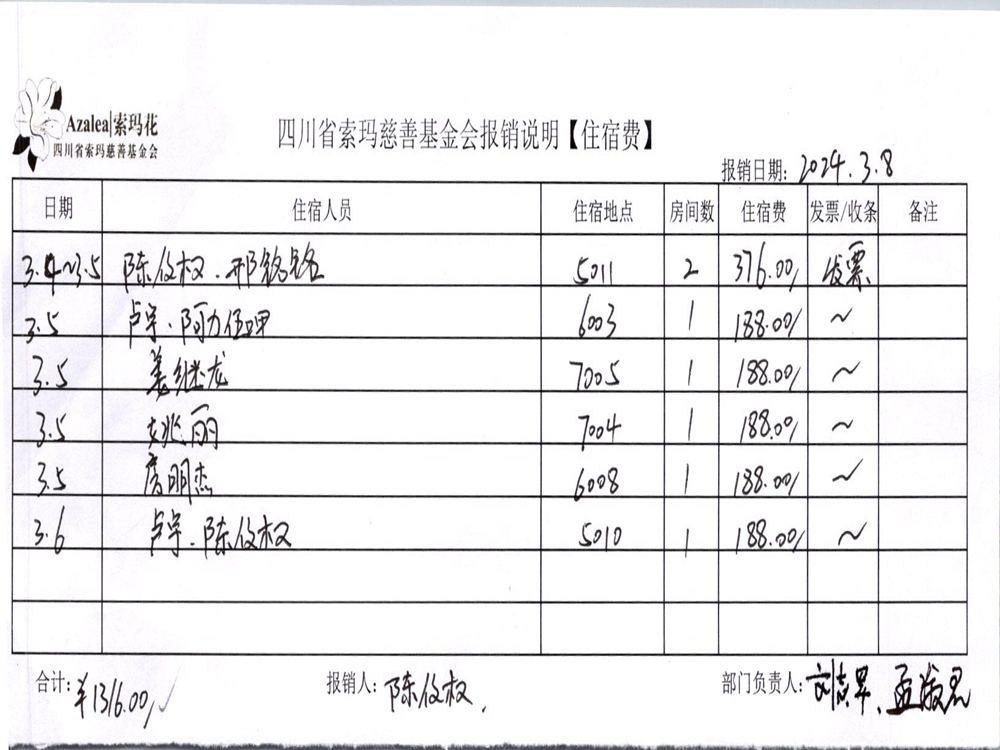 Azalea|索玛花
四川省索玛慈善基金会
四川省索玛慈善基金会报销说明【住宿费】
报销日期: 2024.3.8
日期 住宿人员 住宿地点 房间数 住宿费 发票/收条 备注
3.4~3.5 陈仪权.邢铭铭 5011 2 376.00/ 发票
3.5 卢宇.阿力伍呷 6003 1 188.00/ ~
3.5 姜继龙 7005 1 188.00/ ~
3.5 姚丽 7004 1 188.00/ ~
3.5 房明杰 6008 1 188.00/ ~
3.6 卢宇.陈仪权 5010 1 188.00/ ~
合计: ¥1316.00/ 报销人: 陈仪权. 部门负责人: 刘志